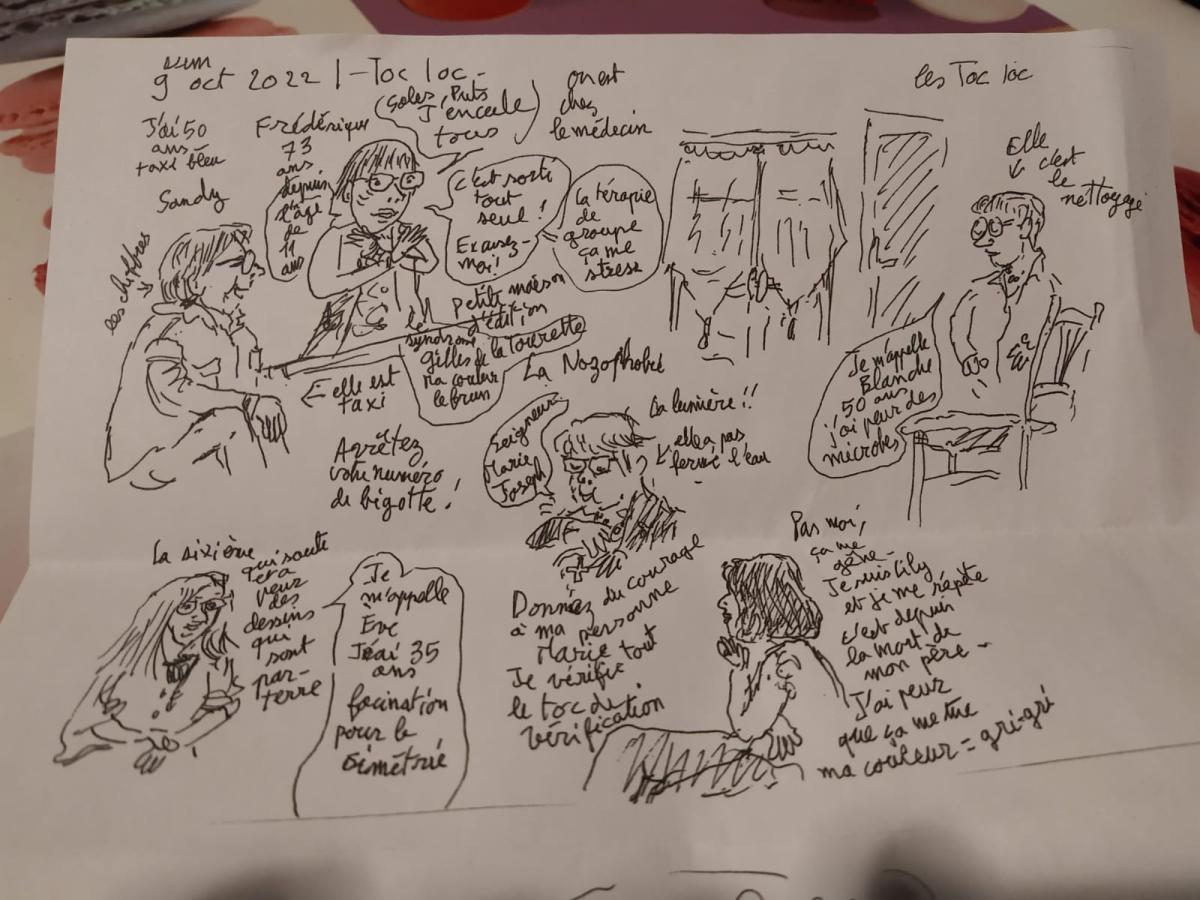 dim
9 oct 2022 | - Toc Toc -
on est
chez
le médecin
les Toc Toc
J'ai 50
ans
taxi bleu
Sandy
les chiffres
Frédérique
73
ans
depuis
l'âge
de
11
ans
J'encule
tous
c'est sorti
tout
seul !
Excusez-
moi !
la térapie
de
groupe
ça me
stress
Petite maison
d'édition
syndrome
gilles de la Tourette
ma couleur
le brun
← elle est
taxi
Elle
c'est
le
nettoyage
Je m'appelle
Blanche
50 ans
j'ai peur des
microbes
La Nozophobie
La lumière !!
elle a pas
fermé l'eau
Seigneur
Marie
Joseph
Arrêtez
votre numéro
de bigotte !
La sixième
qui saute
et a
peur
des
dessins
qui
sont
par-
terre
Je
m'appelle
Eve
J'ai 35
ans
facination
pour la
simêtrie
Donnez du courage
à ma personne
Marie
Je vérifie tout
le toc de
vérification
Pas moi,
ça me
gêne -
Je suis Lily
et je me répète
c'est depuis
la mort de
mon père -
J'ai peur
que ça me tue
ma couleur = gri-gri